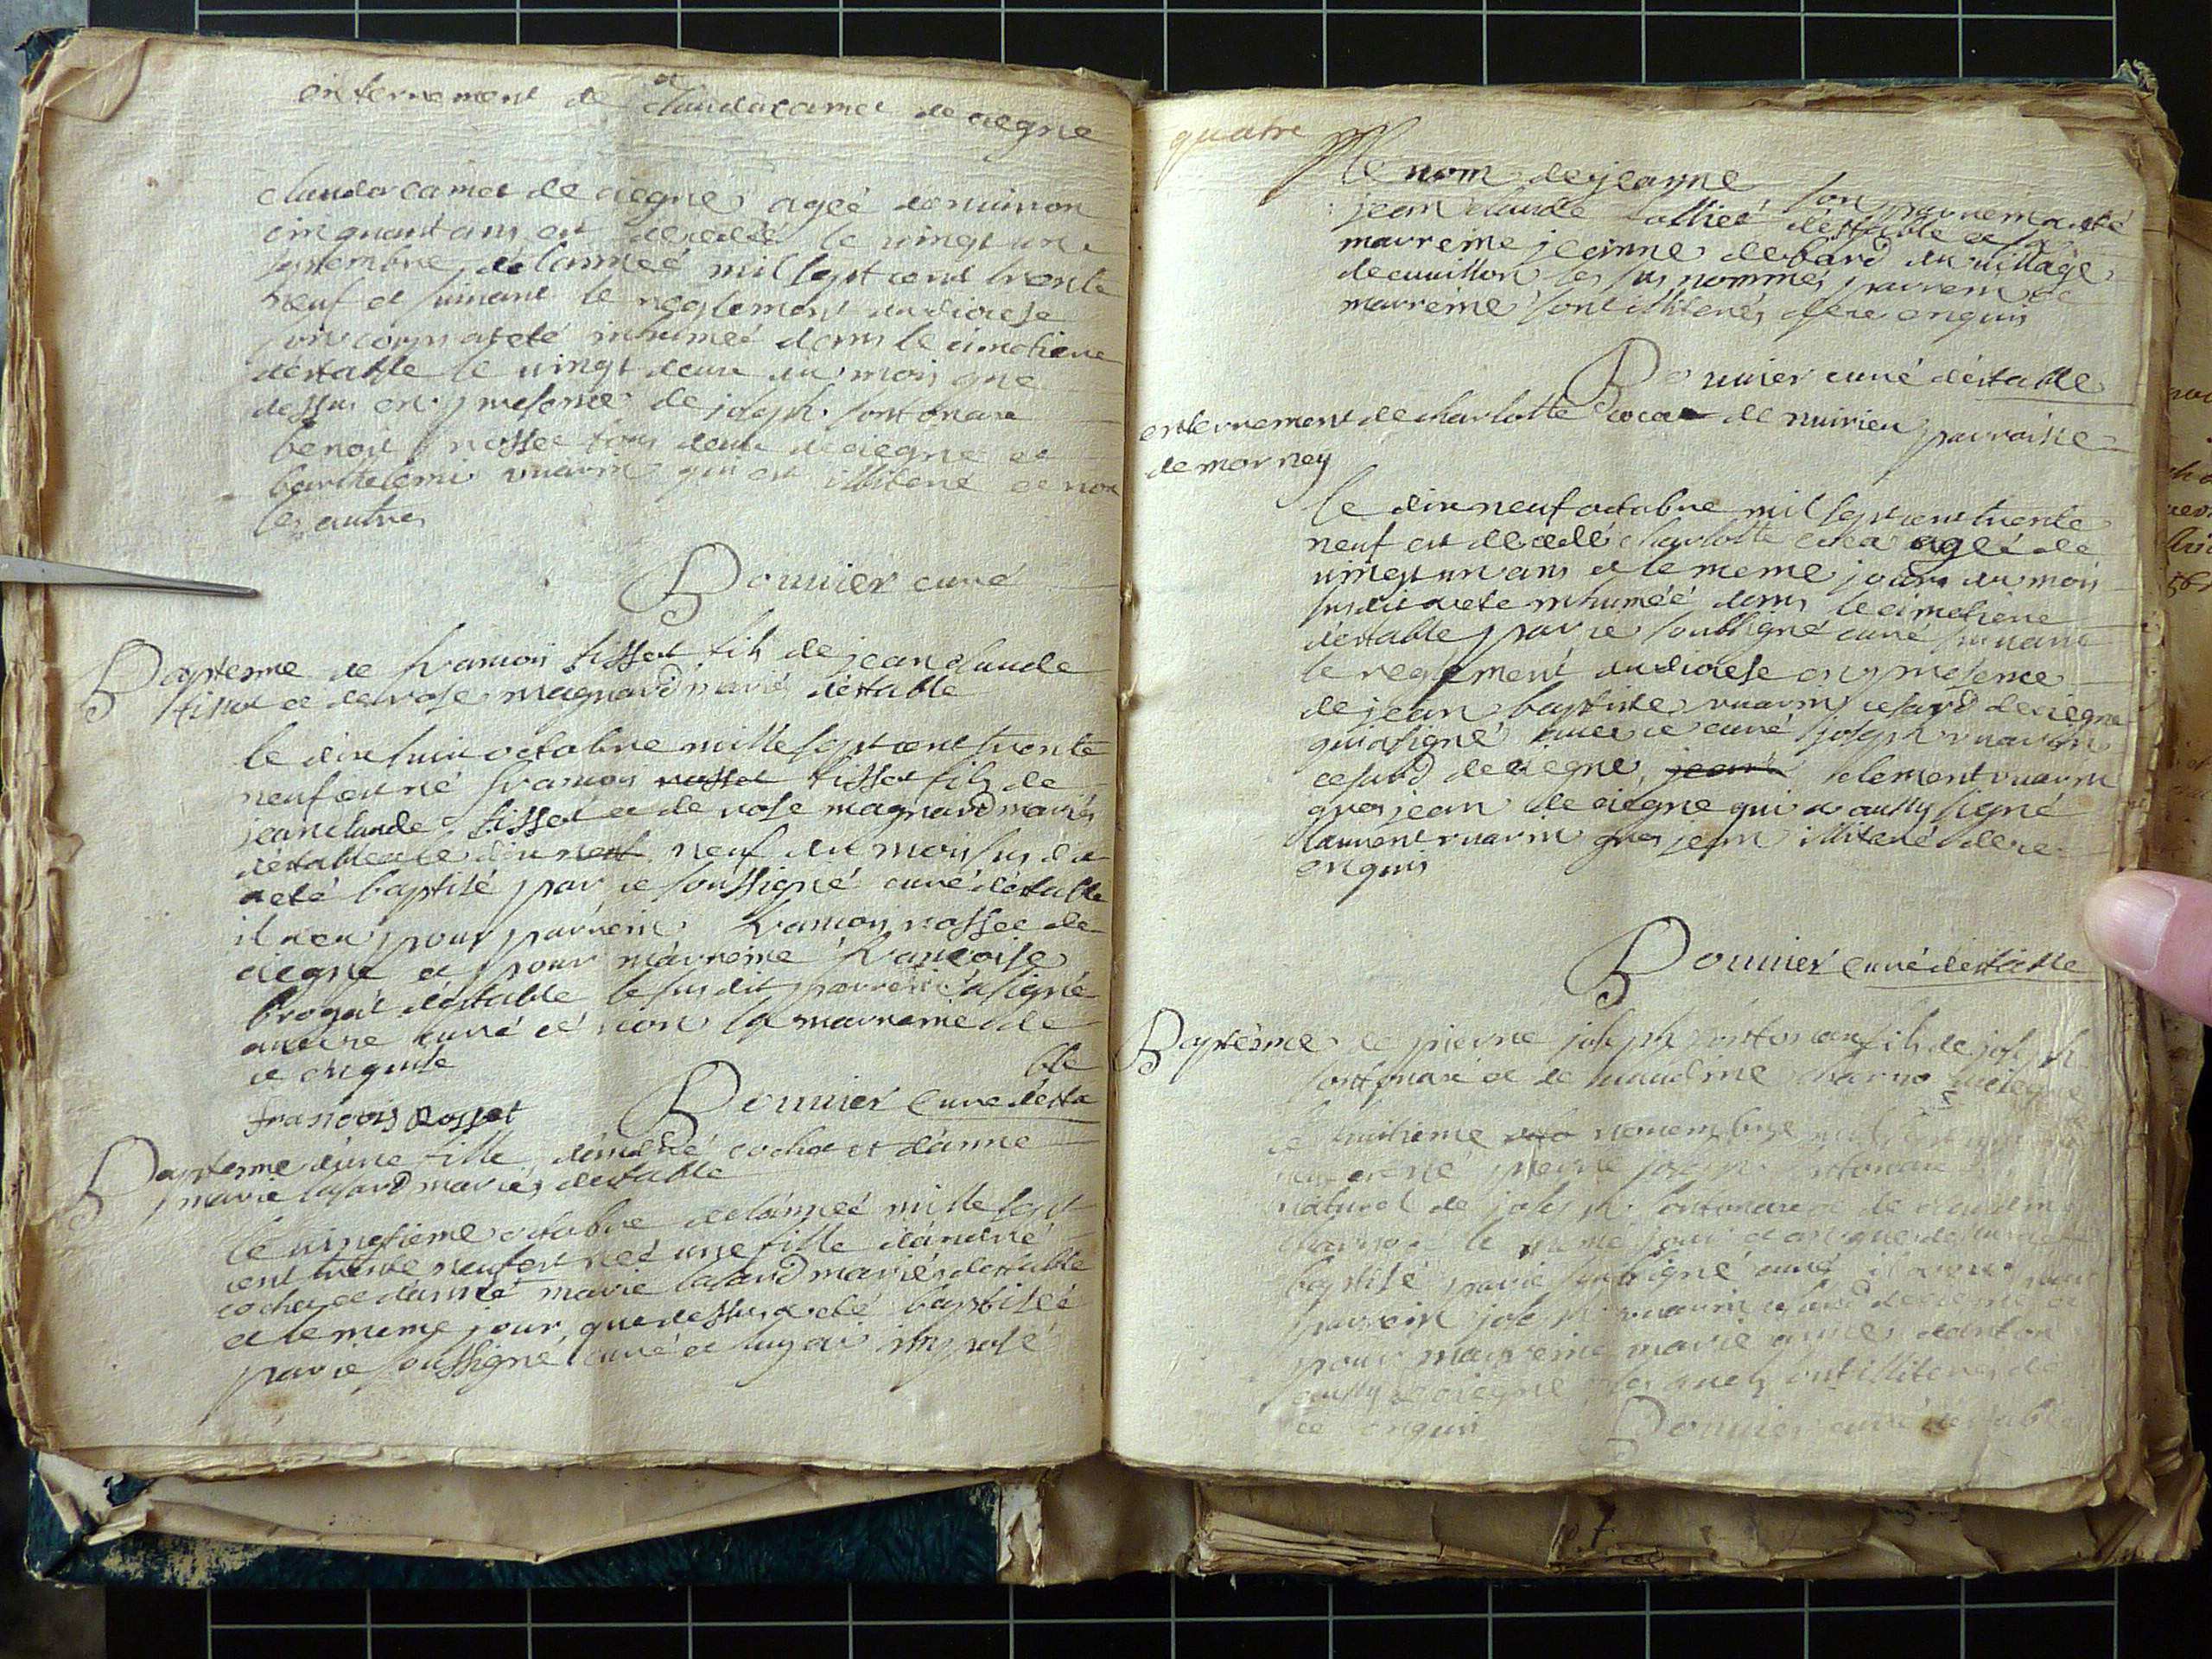 enterrement de clauda camet de ciegne
clauda camet de ciegne ageé denuiron
cinquant ans est decedeé le vingt un
septembre de lanneé mil sept cent trente
neuf et suivant le reglement du diocese
son corps a eté inhumeé dans le cimetiere
déstable le vingt deux du mois que
dessus en presence de joseph fontonaxe
benoit rosset tous deux de ciegne et
barthelemi vuarin qui est illiteré et non
les autres
Bouuier curé
Baptesme de francois tissot fils de jean claude
tissot et de rose magnard mariés déstable
le dix huit octobre mille sept cent trente
neuf est né francois rosset tissot fils de
jean claude tissot et de rose magnard mariés
déstable et le dix neuf du mois sus dit
a eté baptisé par ie soussigné curé déstable
il a eu pour parrein francois rosset de
ciegne et pour marreine francoise
brogat déstable le susdit parrein a signé
auec ie curé et non la marreine de
ce enquise
francois Rosset
ble
Bouuier Curé désta
Baptesme d'une fille d'andré cochet et d'anne
marie lasard mariés déstable
le vingtieme octobre de lanneé mille sept
cent trente neuf est neé une fille d'andré
cochet et d'anne marie lasard mariés déstable
et le meme jour que dessus a eté baptiseé
par ie soussigné curé et luy ai imposé
quatre
le nom de jeanne son parrein a eté
jean claude déstable et sa
marreine jeanne debard du village
de cuuillon les sus nommés parrein et
marreine sont illiterés de ce enquis
Bouuier curé déstable
enterrement de charlotte de nuirieu parroisse
de morney
le dix neuf octobre mil sept cent trente
neuf est decedé charlotte ageé de
vingt un ans et le meme jour du mois
susdit a eté inhumeé dans le cimetiere
déstable par ie soubsigné curé suivant
le reglement du diocese en presence
de jean baptiste vuarin cesard de ciegne
qui a signé auec ie curé joseph vuarin
cesard de ciegne, jean clement vuarin
gros jean de ciegne qui a aussy signé
laurent vuarin gros jean illiteré de ce
enquis
Bouuier curé déstable
Baptésme de pierre joseph fontonaxe fils de joseph
fontonaxe et de claudine de ciegne
le huitieme nouembre
neuf est né pierre joseph fontonaxe
naturel de joseph fontonaxe et de claudine
le meme jour et an que dessus
baptisé par ie soubsigné curé il a eu pour
parrein joseph vuarin cesard de ciegne et
pour marreine marie
aussy de ciegne lesquels sont illiterés de
ce enquis Bouuier curé déstable